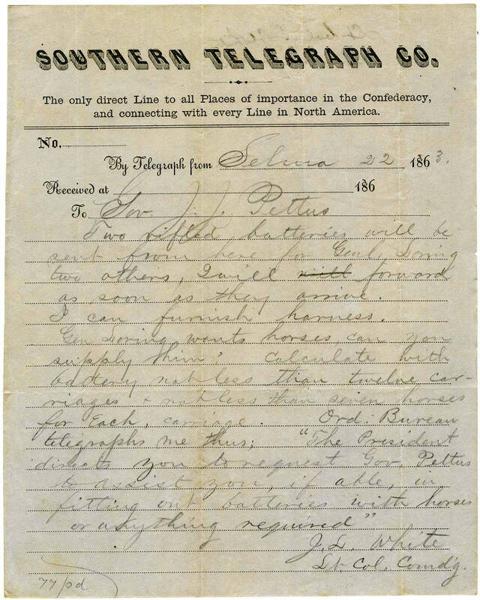 SOUTHERN TELEGRAPH CO.
The only direct Line to all Places of importance in the Confederacy,
and connecting with every Line in North America.
No.
By Telegraph from Selma 22 1863.
Received at 186
To Gov J. J. Pettus
Two rifled batteries will be
sent from here for Genl Loring
two others, I will will forward
as soon as they arrive.
I can furnish harness.
Gen Loring wants horses can you
supply them? Calculate with
battery not less than twelve car-
riages & not less than seven horses
for Each, carriage. Ord. Bureau
telegraphs me thus; "The President
directs you to request Gov. Pettus
to assist you, if able, in
fitting out batteries with horses
or anything required"
J. L. White
Lt Col. Comd'g.
77/pd